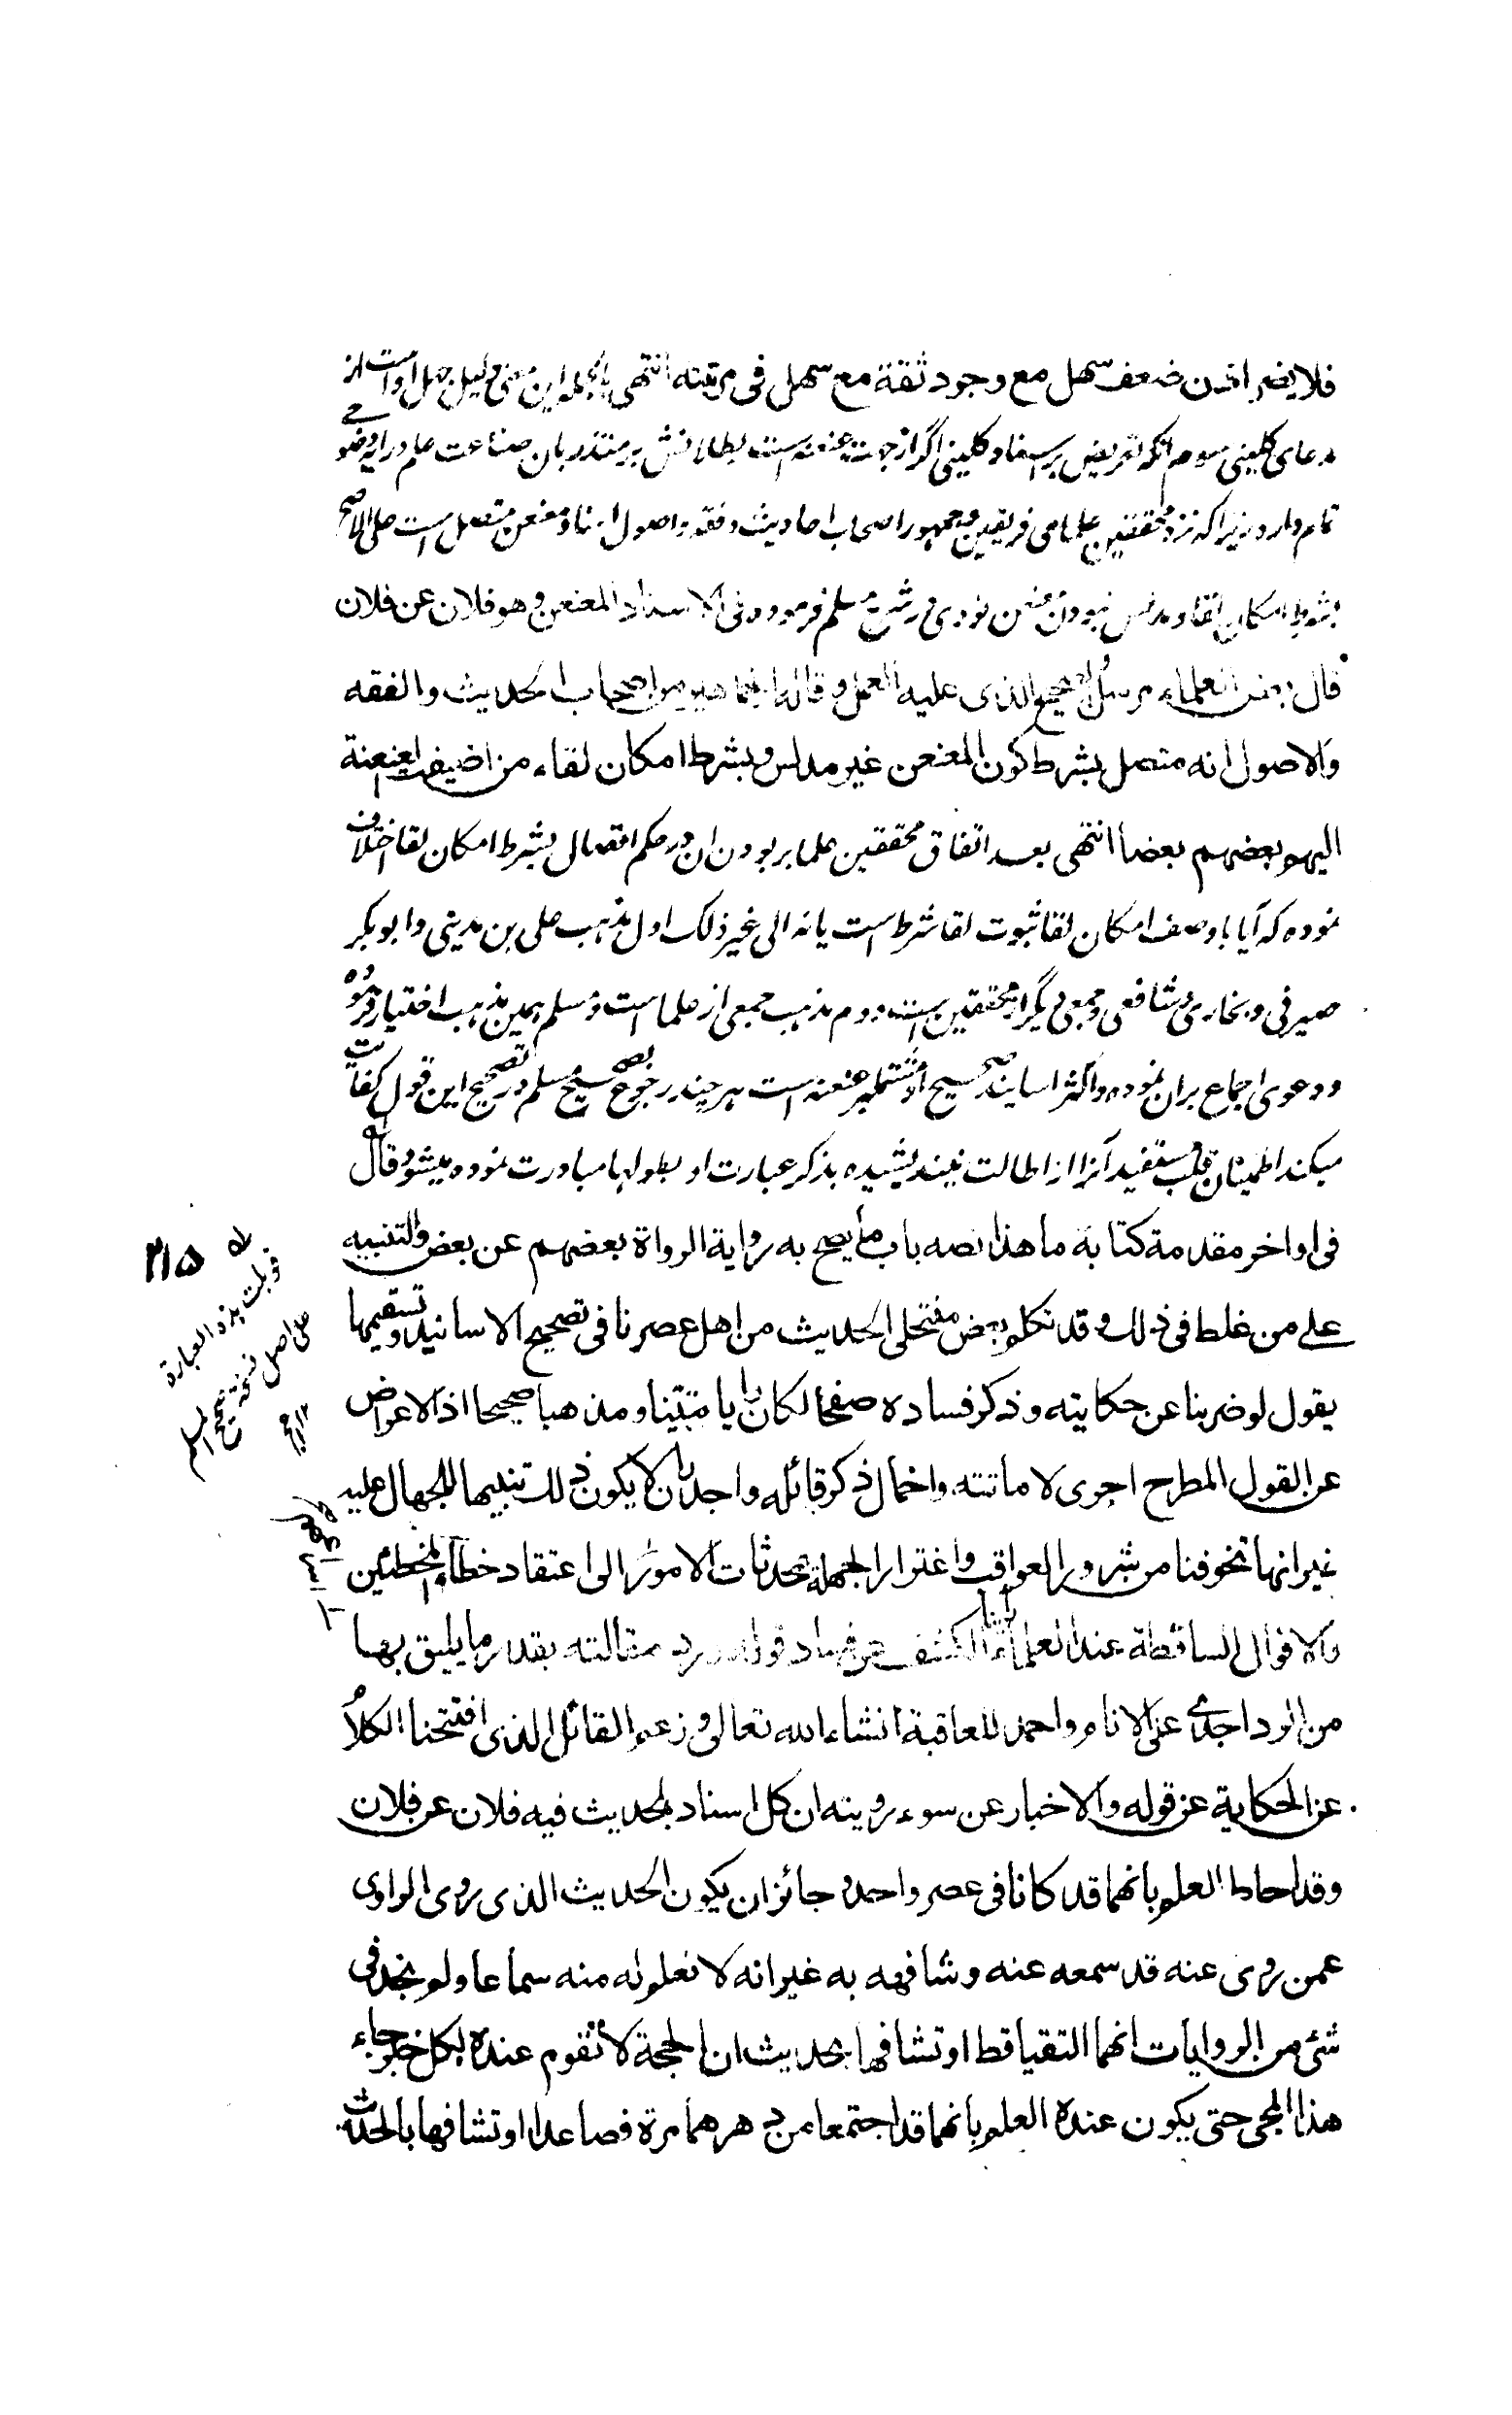 فلا يضر اذن ضعف سهل مع وجود ثقة مع سهل فى مرتبته انتهى بالجمله اين معنى دليل
مدعاى كلينى سوم انكه تعريض بر اسناد كلينى اگر از جهت عنعنه است بطلانش بر متدربان صناعت علم درايه وضوحى
تام دارد زيرا كه نزد محققين علماى فريقين و جمهور اصحاب احاديث و فقه و اصول اسناد معنعن متصل است على الاصح
بشرط امكان لقا و مدلس نبودن معنعن نووى در شرح مسلم فرموده فى الاسناد المعنعن وهو فلان عن فلان
قال بعض العلماء مرسل والصحيح الذى عليه العمل وقاله الجماهير من اصحاب الحديث والفقه
والاصول انه متصل بشرط كون المعنعن غير مدلس وبشرط امكان لقاء من اضيفت العنعنة
اليهم بعضهم بعضا انتهى بعد اتفاق محققين علما بر بودن ان در حكم اتصال بشرط امكان لقا اختلاف
نموده كه آيا با وصف امكان لقا ثبوت لقا شرط است يا نه الى غير ذلك اول مذهب على بن مدينى و ابو بكر
صيرفى و بخارى و شافعى و جمعى ديگر از محققين است و دوم مذهب جمعى از علما است و مسلم همين مذهب اختيار فرموده
ودعوى اجماع بران نموده و اكثر اسانيد صحيح او مشتمل بر عنعنه است هر چند رجوع بصحيح مسلم در تصحيح اين قول كفايت
ميكند اطمينان قلب مستفيد آنرا از اطالت نينديشيده بذكر عبارت او بطولها مبادرت نموده ميشود قال
فى اواخر مقدمة كتابه ما هذا نصه باب ما يصح به رواية الرواة بعضهم عن بعض والتنبيه
على من غلط فى ذلك وقد تكلم بعض منتحلى الحديث من اهل عصرنا فى تصحيح الاسانيد وتسقيمها
يقول لو ضربنا عن حكايته وذكر فساده صفحا لكان رايا متينا ومذهبا صحيحا اذ الاعراض
عن القول المطرح احرى لاماتته واخمال ذكر قائله واجدر ان لا يكون ذلك تنبيها للجهال عليه
غير انها تخوفنا من شرور العواقب واغترار الجهلة بمحدثات الامور الى اعتقاد خطاء المخطئين
والاقوال الساقطة عند العلماء راينا الكشف عن فساد قوله ورد مقالته بقدر ما يليق بها
من الرد اجدى على الانام واحمد للعاقبة انشاء الله تعالى وزعم القائل الذى افتتحنا الكلام
عن الحكاية عن قوله والاخبار عن سوء رويته ان كل اسناد لحديث فيه فلان عن فلان
وقد احاط العلم بانهما قد كانا فى عصر واحد و جائز ان يكون الحديث الذى روى الراوى
عمن روى عنه قد سمعه عنه وشافهه به غير انه لا نعلم له منه سماعا ولم نجد فى
شئ من الروايات انهما التقيا قط او تشافها بحديث ان الحجة لا تقوم عنده بكل خبر جاء
هذا المجى حتى يكون عنده العلم بانهما قد اجتمعا من دهرهما مرة فصاعدا او تشافها بالحديث
قوبلت هذه العبارة
على اصل نسخة صحيح المسلم